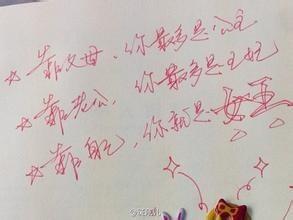 ☆ 靠父母,你最多是公主
☆ 靠老公,你最多是王妃
☆ 靠自己,你就是女王